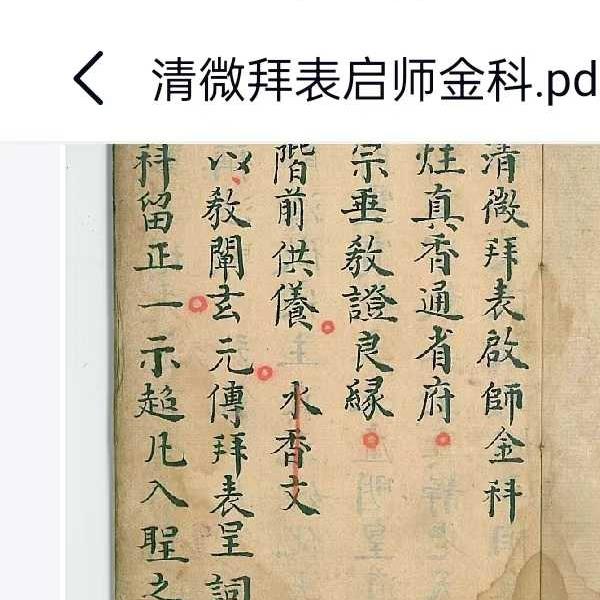 清微拜表启师金科.pd
清微拜表啟師金科
炷真香通省府
宗垂教證良緣
階前供養 水香文
以教闡玄元傳拜表呈詞
科留正一示超凡入聖之